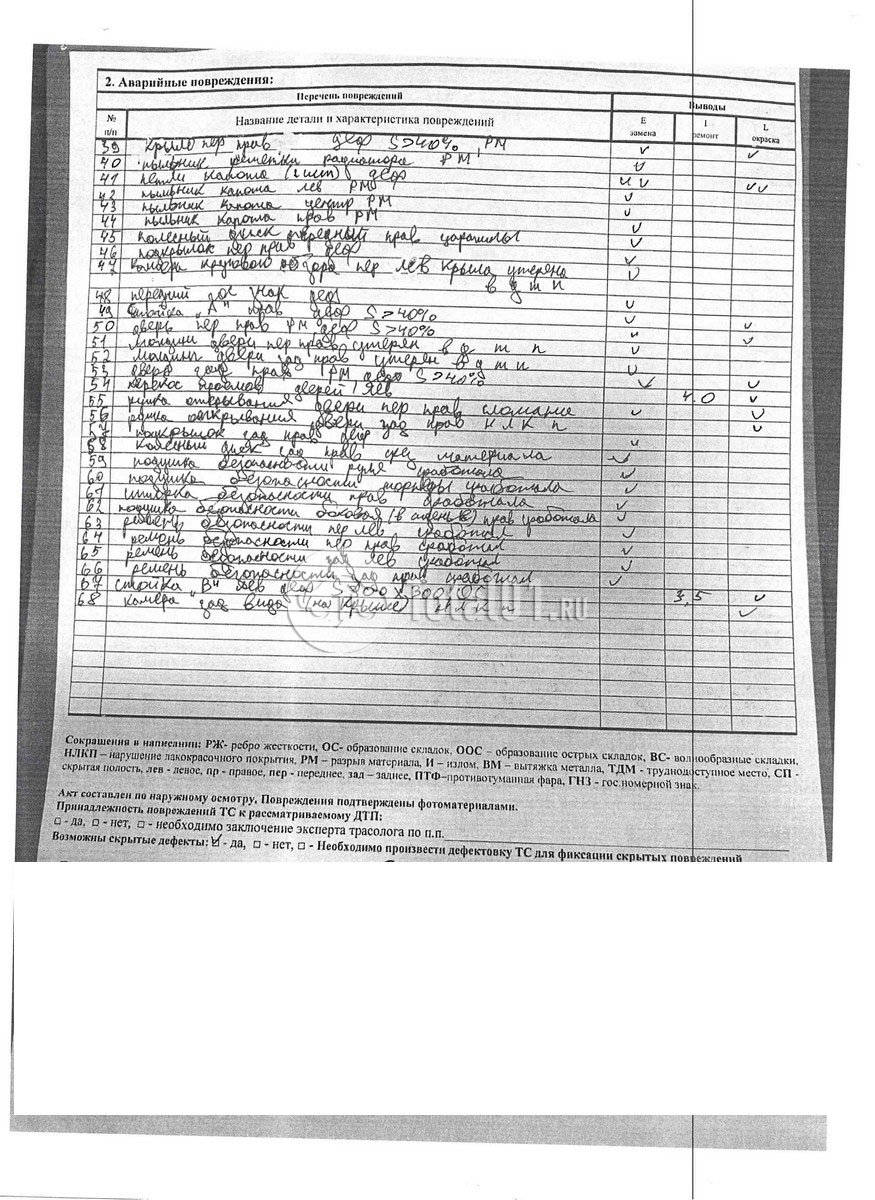 2. Аварийные повреждения:
Перечень повреждений Выводы
№ п/п Название детали и характеристика повреждений E замена I ремонт L окраска
39 крыло пер прав деф S>40%, РМ ✓ ✓
40 пыльник решетки радиатора РМ ✓
41 петли капота (2шт) деф ✓✓ ✓✓
42 пыльник капота лев РМ ✓
43 пыльник капота центр РМ ✓
44 пыльник капота прав РМ ✓
45 колесный диск передный прав царапины ✓
46 подкрылок пер прав деф ✓
47 камера кругового обзора пер лев крыла утеряна ✓
в дтп
48 передний гос знак деф ✓
49 стойка "А" прав деф S>40% ✓ ✓
50 дверь пер прав РМ деф S>40% ✓ ✓
51 молдинг двери пер прав утерян в дтп ✓
52 молдинг двери зад прав утерян в дтп ✓
53 дверь зад прав РМ деф S>40% ✓ ✓
54 перекос проемов дверей лев 4.0 ✓
55 ручка открывания двери пер прав сломание ✓ ✓
56 ручка открывания двери зад прав НЛКП ✓
57 подкрылок зад прав деф ✓
58 колесный диск зад прав срез материала ✓
59 подушка безопасности руля сработала ✓
60 подушка безопасности торпеды сработала ✓
61 шторка безопасности прав сработала ✓
62 подушка безопасности боковая (в спинке) прав сработала ✓
63 ремень безопасности пер лев сработал ✓
64 ремень безопасности пер прав сработал ✓
65 ремень безопасности зад лев сработал ✓
66 ремень безопасности зад прав сработал ✓
67 стойка "В" лев деф 3,5 ✓
68 камера зад вида (на крышке) НЛКП ✓
TOTAL01.RU
Сокращения в написании: РЖ- ребро жесткости, ОС- образование складок, ООС – образование острых складок, ВС- волнообразные складки,
НЛКП – нарушение лакокрасочного покрытия, РМ – разрыв материала, И – излом, ВМ – вытяжка металла, ТДМ - труднодоступное место, СП -
скрытая полость, лев - левое, пр - правое, пер - переднее, зад – заднее, ПТФ–противотуманная фара, ГНЗ - гос.номерной знак.
Акт составлен по наружному осмотру. Повреждения подтверждены фотоматериалами.
Принадлежность повреждений ТС к рассматриваемому ДТП:
□ - да, □ - нет, □ - необходимо заключение эксперта трасолога по п.п.
Возможны скрытые дефекты: ☑ - да, □ - нет, □ - Необходимо произвести дефектовку ТС для фиксации скрытых повреждений